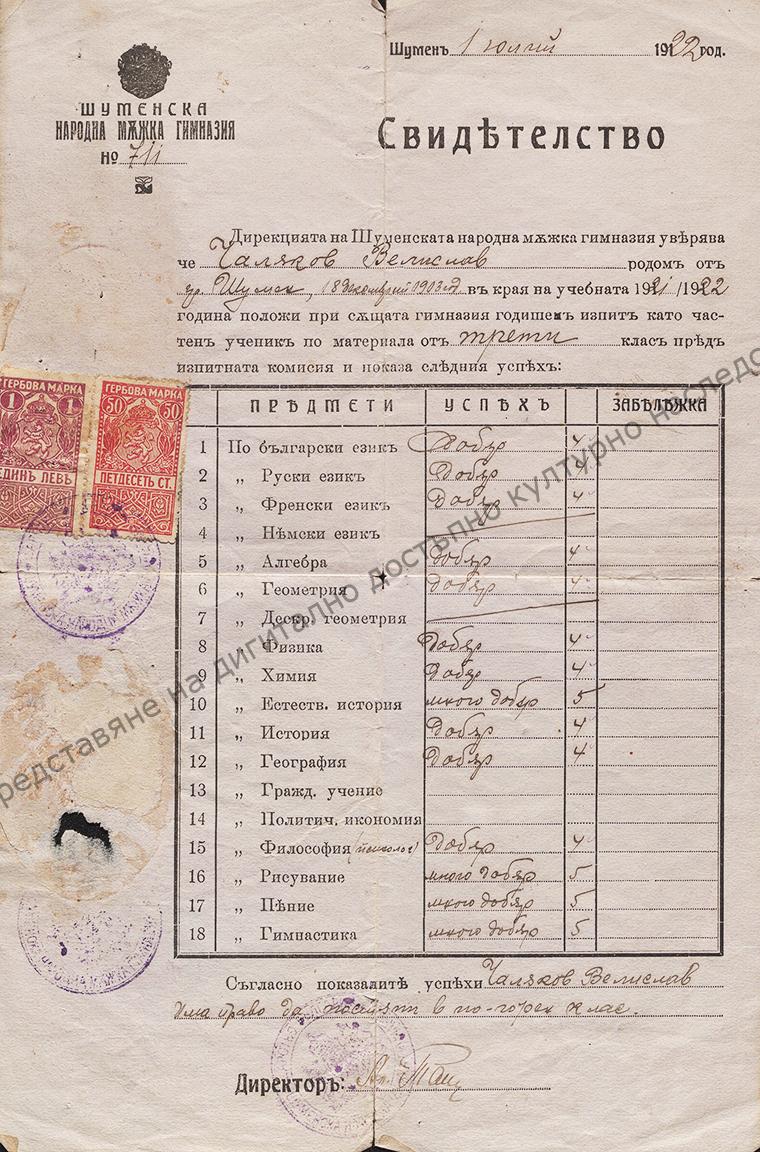 Шуменъ 1 юлий 1922 год.
ШУМЕНСКА
НАРОДНА МѪЖКА ГИМНАЗИЯ
№ 711
Свидѣтелство
Дирекцията на Шуменската народна мѫжка гимназия увѣрява
че Чаляков Велислав родомъ отъ
гр. Шумен, 18 декемврий 1903 год въ края на учебната 1921/1922
година положи при сѫщата гимназия годишенъ изпитъ като час-
тенъ ученикъ по материала отъ трети класъ прѣдъ
изпитната комисия и показа слѣдния успѣхъ:
ГЕРБОВА МАРКА ГЕРБОВА МАРКА
1 1 50 50
ЕДИНЪ ЛЕВЪ ПЕТДЕСЕТЬ СТ.
ПРѢДМЕТИ УСПѢХЪ ЗАБѢЛѢЖКА
1 По български езикъ Добър 4
2 „ Руски езикъ Добър 4
3 „ Френски езикъ Добър 4
4 „ Нѣмски езикъ
5 „ Алгебра добър 4
6 „ Геометрия добър 4
7 „ Дескр. геометрия
8 „ Физика добър 4
9 „ Химия добър 4
10 „ Естеств. история много добър 5
11 „ История добър 4
12 „ География добър 4
13 „ Гражд. учение
14 „ Политич. икономия
15 „ Философия (психолог) добър 4
16 „ Рисувание много добър 5
17 „ Пѣние много добър 5
18 „ Гимнастика много добър 5
Съгласно показалитѣ успѣхи Чаляков Велислав
Има право да постѫпи в по-горен клас.
Директоръ:
редставяне на дигитално достъпно културно наследство